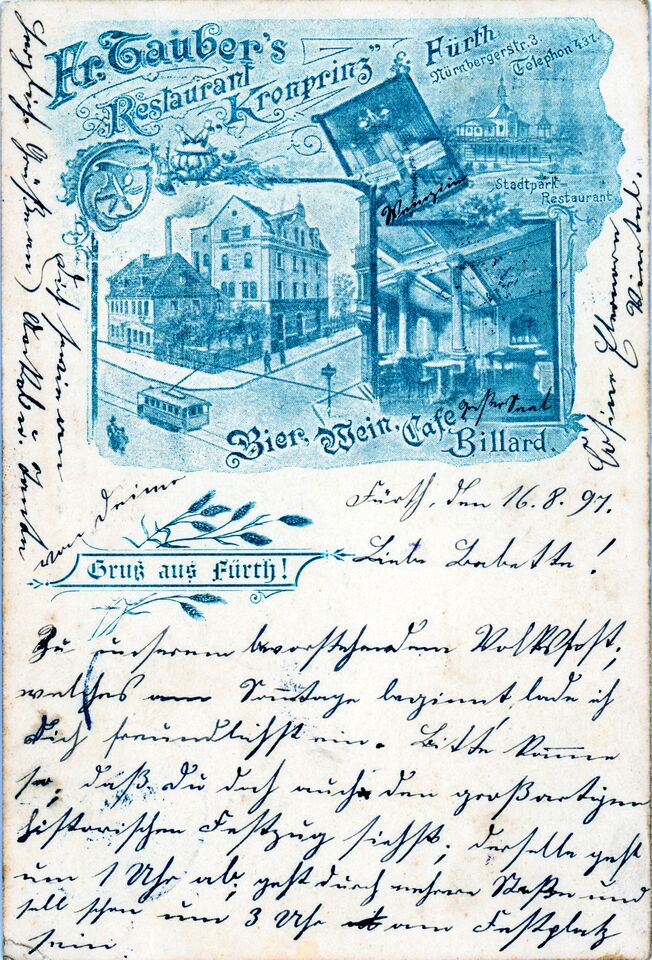 Fr. Tauber's
Restaurant „Kronprinz"
Fürth
Nürnbergerstr. 3.
Telephon 437.
Stadtpark-
Restaurant
Bier, Wein, Cafe
Billard.
Gruß aus Fürth!
Fürth, den 16.8.97.
Liebe Babette!
Zu unserem bevorstehendem Volksfest,
welches am Sonntage beginnt, lade ich
Dich freundlichst ein. Bitte komme
so, daß du doch auch den großartigen
historischen Festzug siehst; derselbe geht
um 1 Uhr ab, geht durch mehrere Straßen und
soll schon um 3 Uhr am Festplatz
sein.
von Deiner